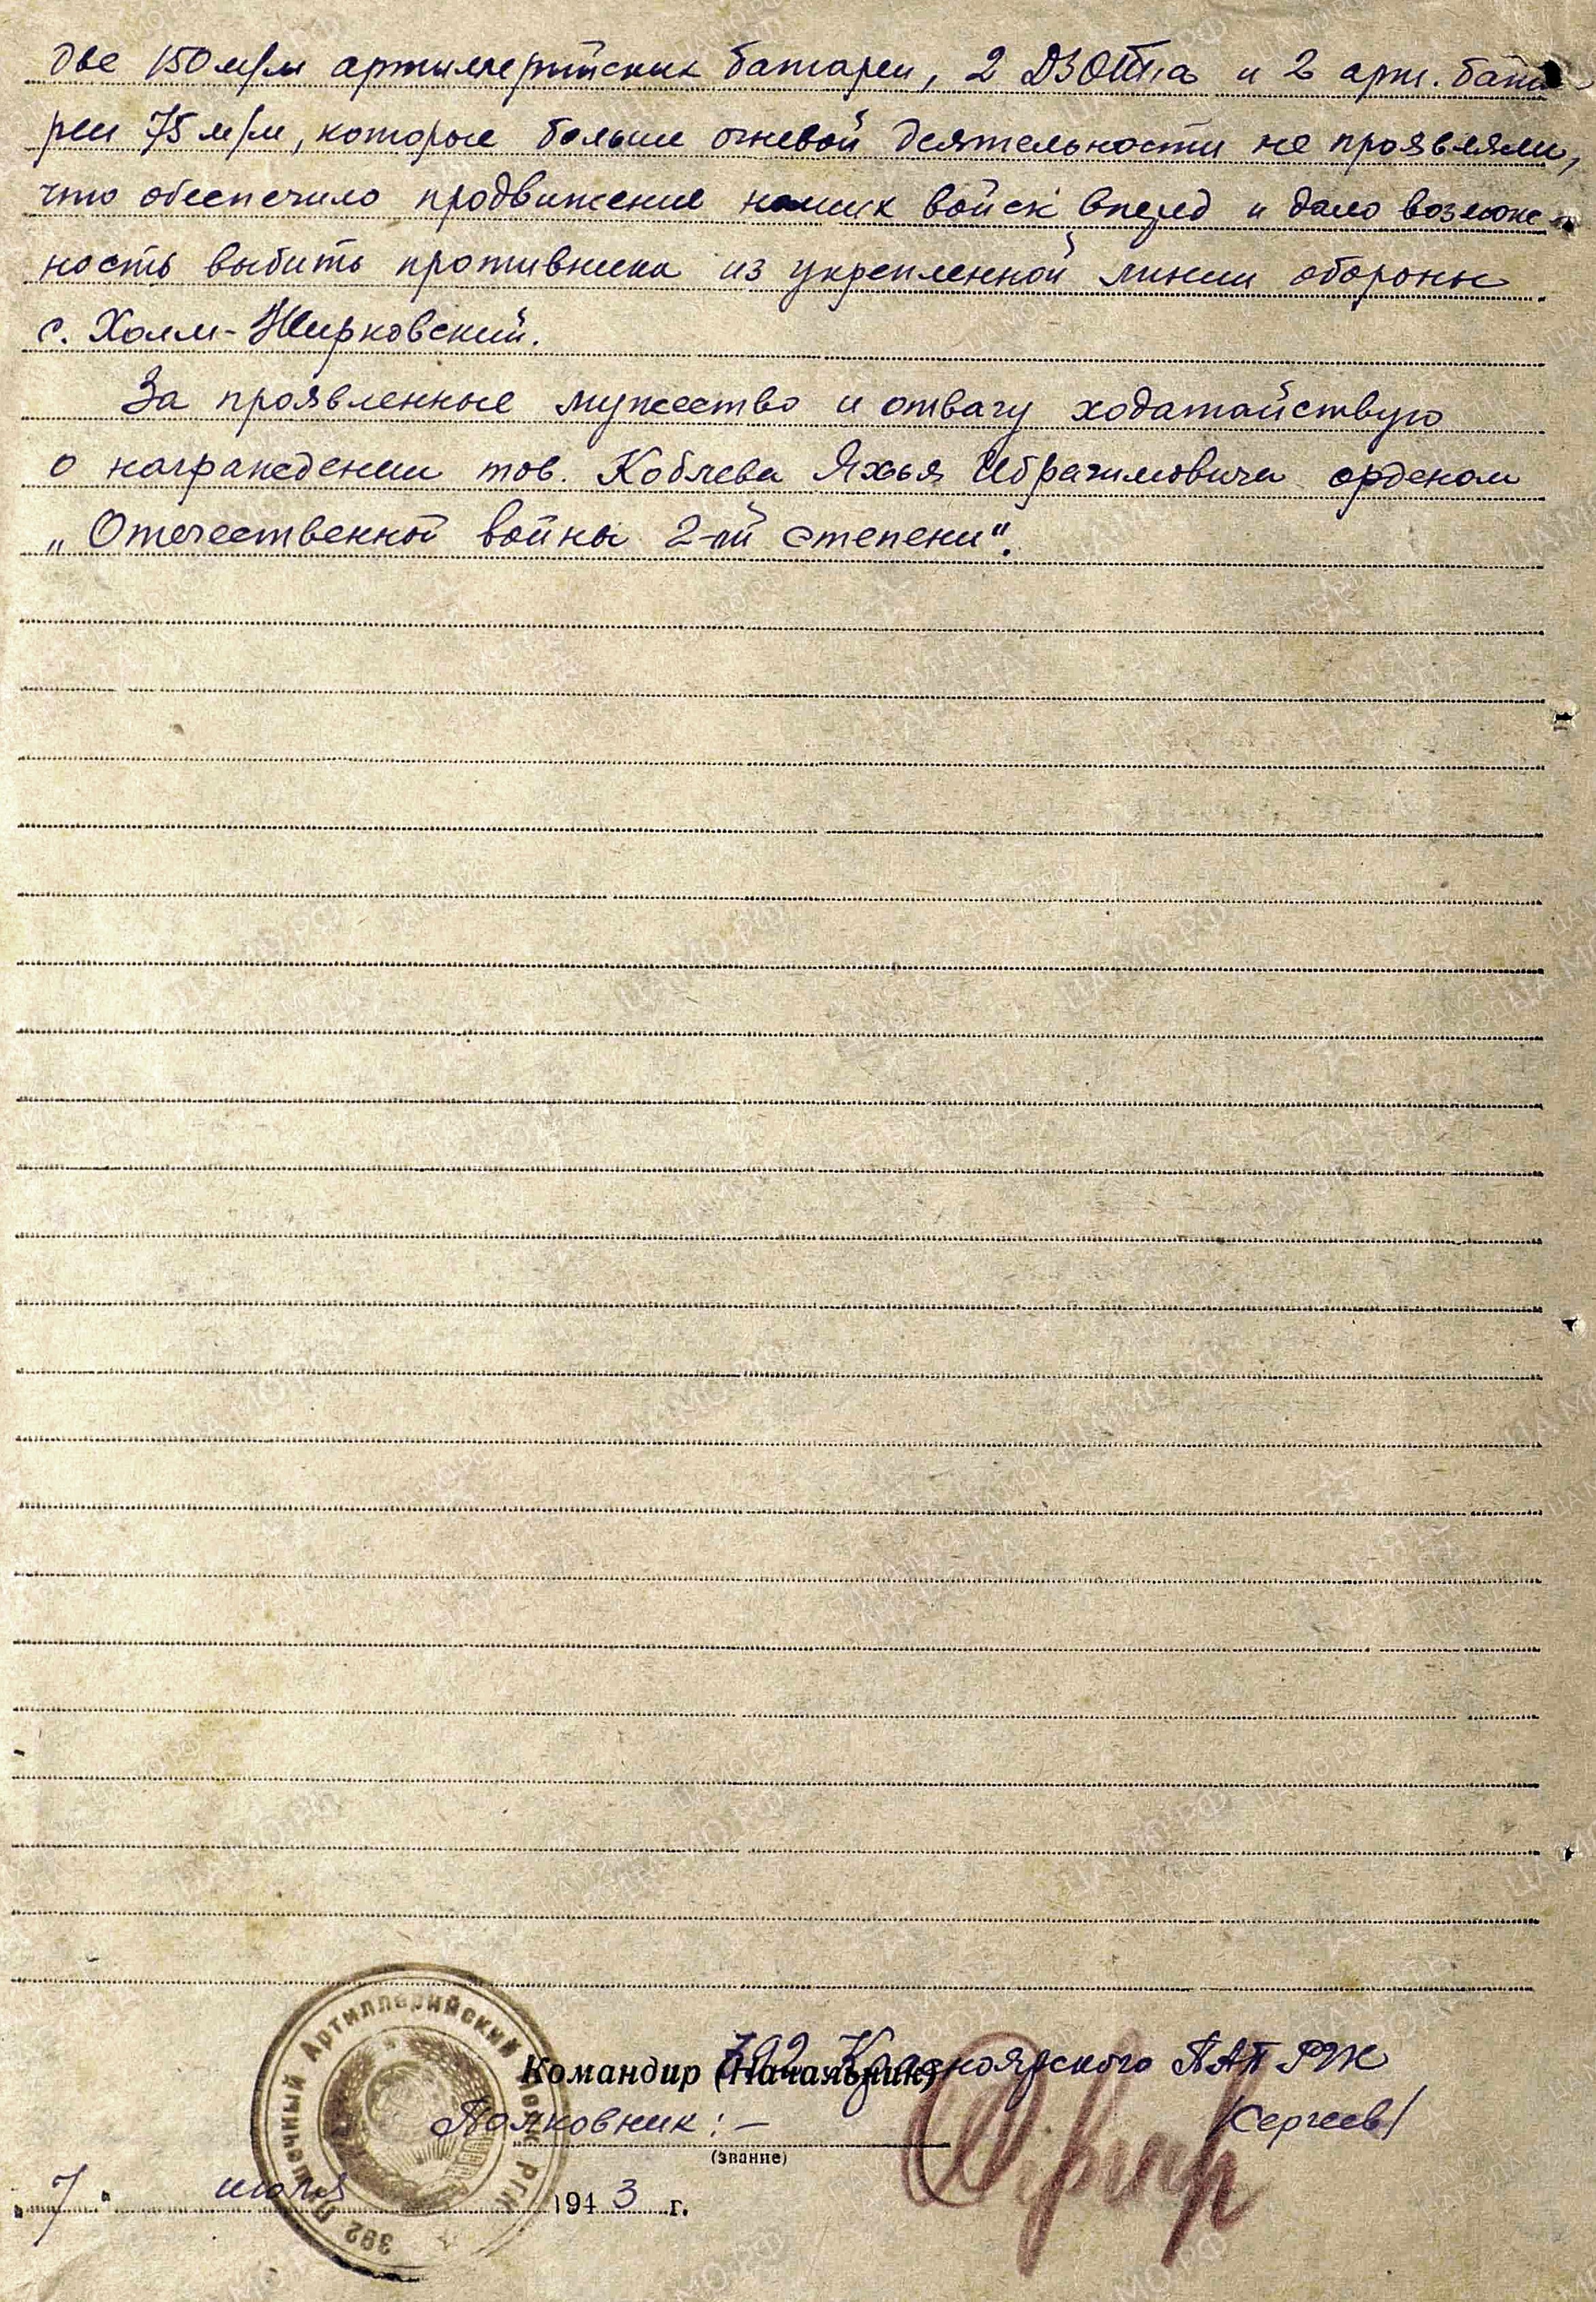 две 150 м/м артиллерийских батареи, 2 ДЗОТ'а и 2 арт. бата
реи 75 м/м, которые больше огневой деятельности не проявляли,
что обеспечило продвижение наших войск вперед и дало возмож-
ность выбить противника из укрепленной линии обороны
с. Холм-Жирковский.
За проявленные мужество и отвагу ходатайствую
о награждении тов. Коблева Яхья Ибрагимовича орденом
„Отечественной войны 2-ой степени".
392 Красноярского ПАП РГК
Командир (Начальник)
Полковник: — /Сергеев/
(звание)
„7" июля 1943 г.
392 Пушечный Артиллерийский полк РГК